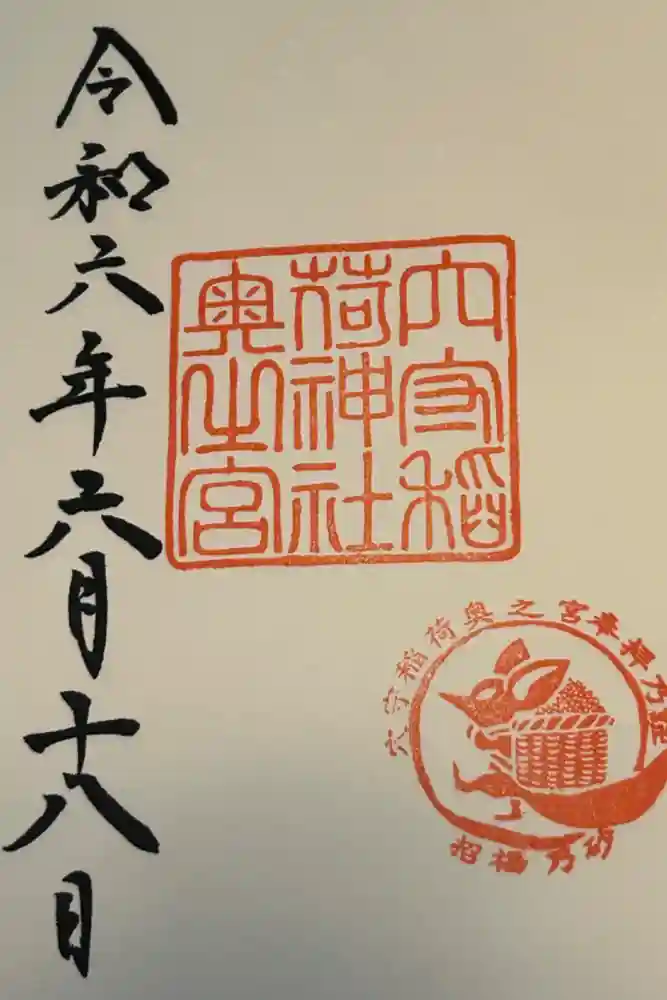 穴守稲
荷神社
奥之宮
令和六年六月十八日
穴守稲荷奥之宮奉拝乃証
招福乃砂